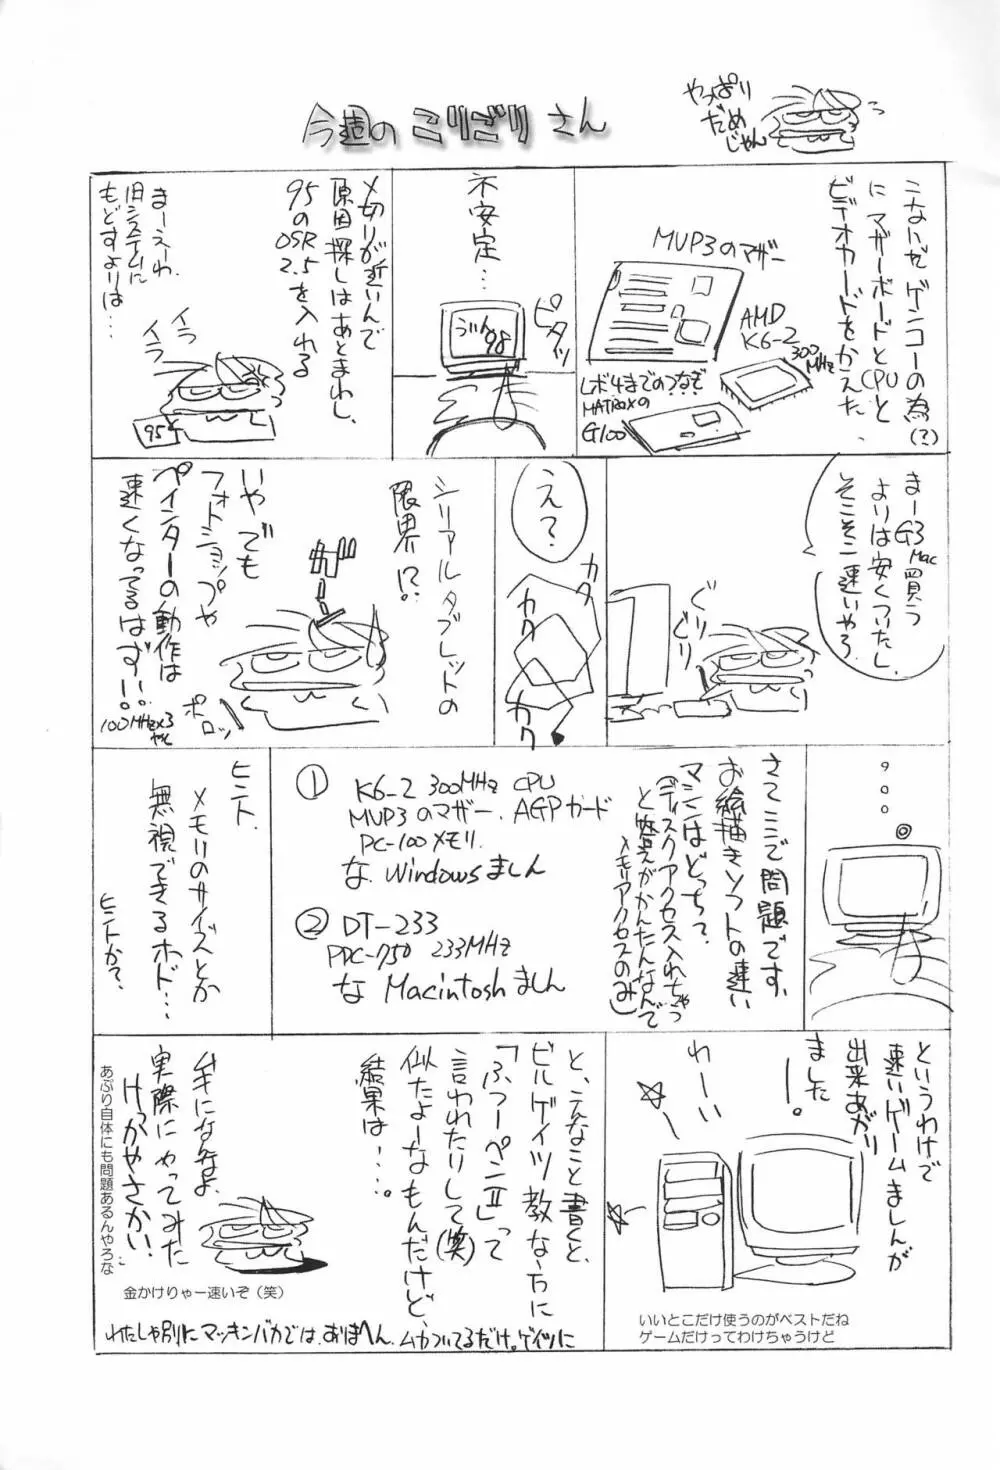 今週の こりごり さん
やっぱり
だめ
じゃん
こないだ ゲンコーの為(?)
に マザーボードとCPUと
ビデオカードをかえた
MVP3のマザー
AMD
K6-2
300MHz
レボ4までのつなぎ
MATROXの
G100
不安定…
うぃん
98
ピタッ
〆切りが近いんで
原因探しはあとまわし、
95の
OSR
2.5を入れる
まーえーわ、
旧システムに
もどすよりは…
イラ
イラ
95
まーG3 Mac買う
よりは安くついたし、
そこそこ速いやろ
ぐりぐり
え?
カク
カク
カク
シリアルタブレットの
限界!?
いやでも
フォトショップや
ペインターの動作は
速くなってるはず!!
100MHz×3
やし
ポロッ
さてここで問題です、
お絵描きソフトの速い
マシンはどっち?
(ディスクアクセス入れちゃう
と答えがかんたんなんで
メモリアクセスのみ)
① K6-2 300MHz CPU
MVP3のマザー、AGPカード
PC-100メモリ
な Windowsましん
② DT-233
PPC-750 233MHz
な Macintoshましん
ヒント、
メモリのサイズとか
無視できるホド…
ヒントか?
というわけで
速いゲームましんが
出来あがり
ましたー。
わーい
いいとこだけ使うのがベストだね
ゲームだけってわけちゃうけど
と、こんなこと書くと、
ビルゲイツ教な方に
「ふつーペンⅡ」って
言われたりして(笑)
似たよーなもんだけど、
結果は…。
ムキになるなよ
実際にやってみた
けっかやさかい!
あぷり自体にも問題あるんやろな
金かけりゃー速いぞ（笑）
わたしゃ別にマッキンバカでは、おまへん、ムカついてるだけ。ゲイツに